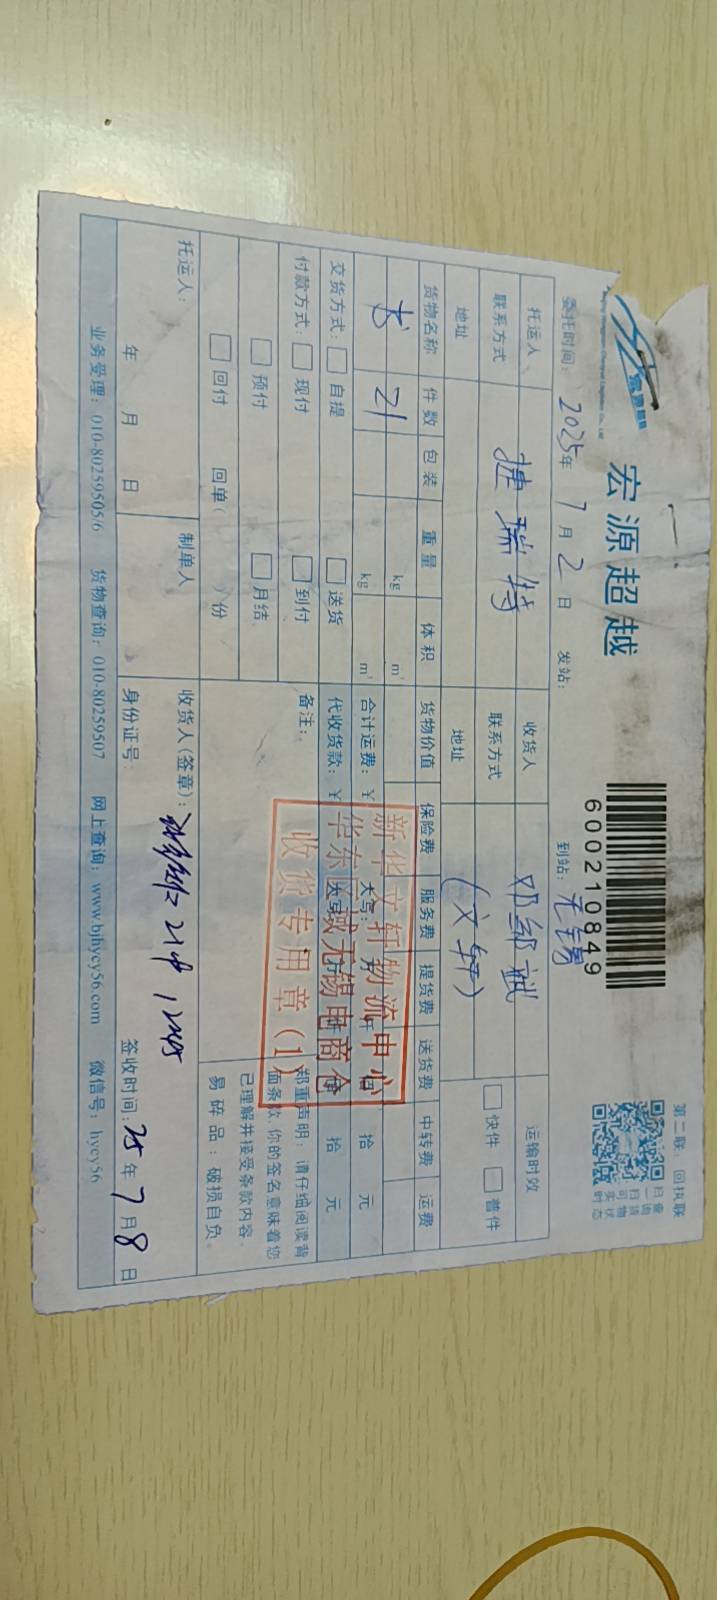 宏源超越
600210849
第二联：回执联
扫一扫
查询货物
可实时状态
委托时间：2025年7月2日 发站： 到站：无锡
托运人 捷瑞特 收货人 邓邹斌 运输时效
联系方式 联系方式 (文轩) 快件 普件
地址 地址
货物名称 件数 包装 重量 体积 货物价值 保险费 服务费 提货费 送货费 中转费 运费
书 21 kg m³
kg m³ 合计运费：¥ 大写： 仟 佰 拾 元
交货方式： 自提 送货 代收货款：¥ 大写： 仟 佰 拾 元
付款方式： 现付 到付 备注：
预付 月结
回付 回单( )份
郑重声明：请仔细阅读背
面条款，你的签名意味着您
已理解并接受条款内容。
易碎品：破损自负。
新华文轩物流中心
华东区域无锡电商仓
收货专用章(1)
托运人： 制单人 收货人(签章)： 21件
年 月 日 身份证号： 签收时间：25年7月8日
业务受理：010-80259505/6 货物查询：010-80259507 网上查询：www.bjhycy56.com 微信号：hycy56